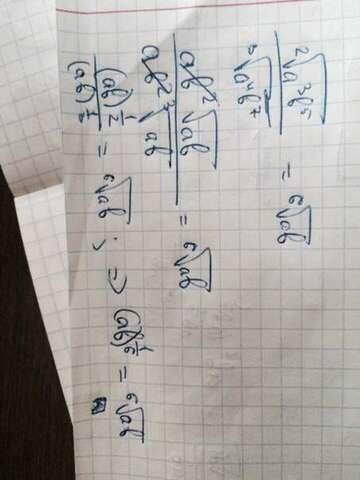 ²√(a³b⁵) / ³√(a⁴b⁷) = ⁶√(ab)
ab²√(ab) / ab²³√(ab) = ⁶√(ab)
(ab)^(1/2) / (ab)^(1/3) = ⁶√(ab) ; ⇒ (ab)^(1/6) = ⁶√(ab)